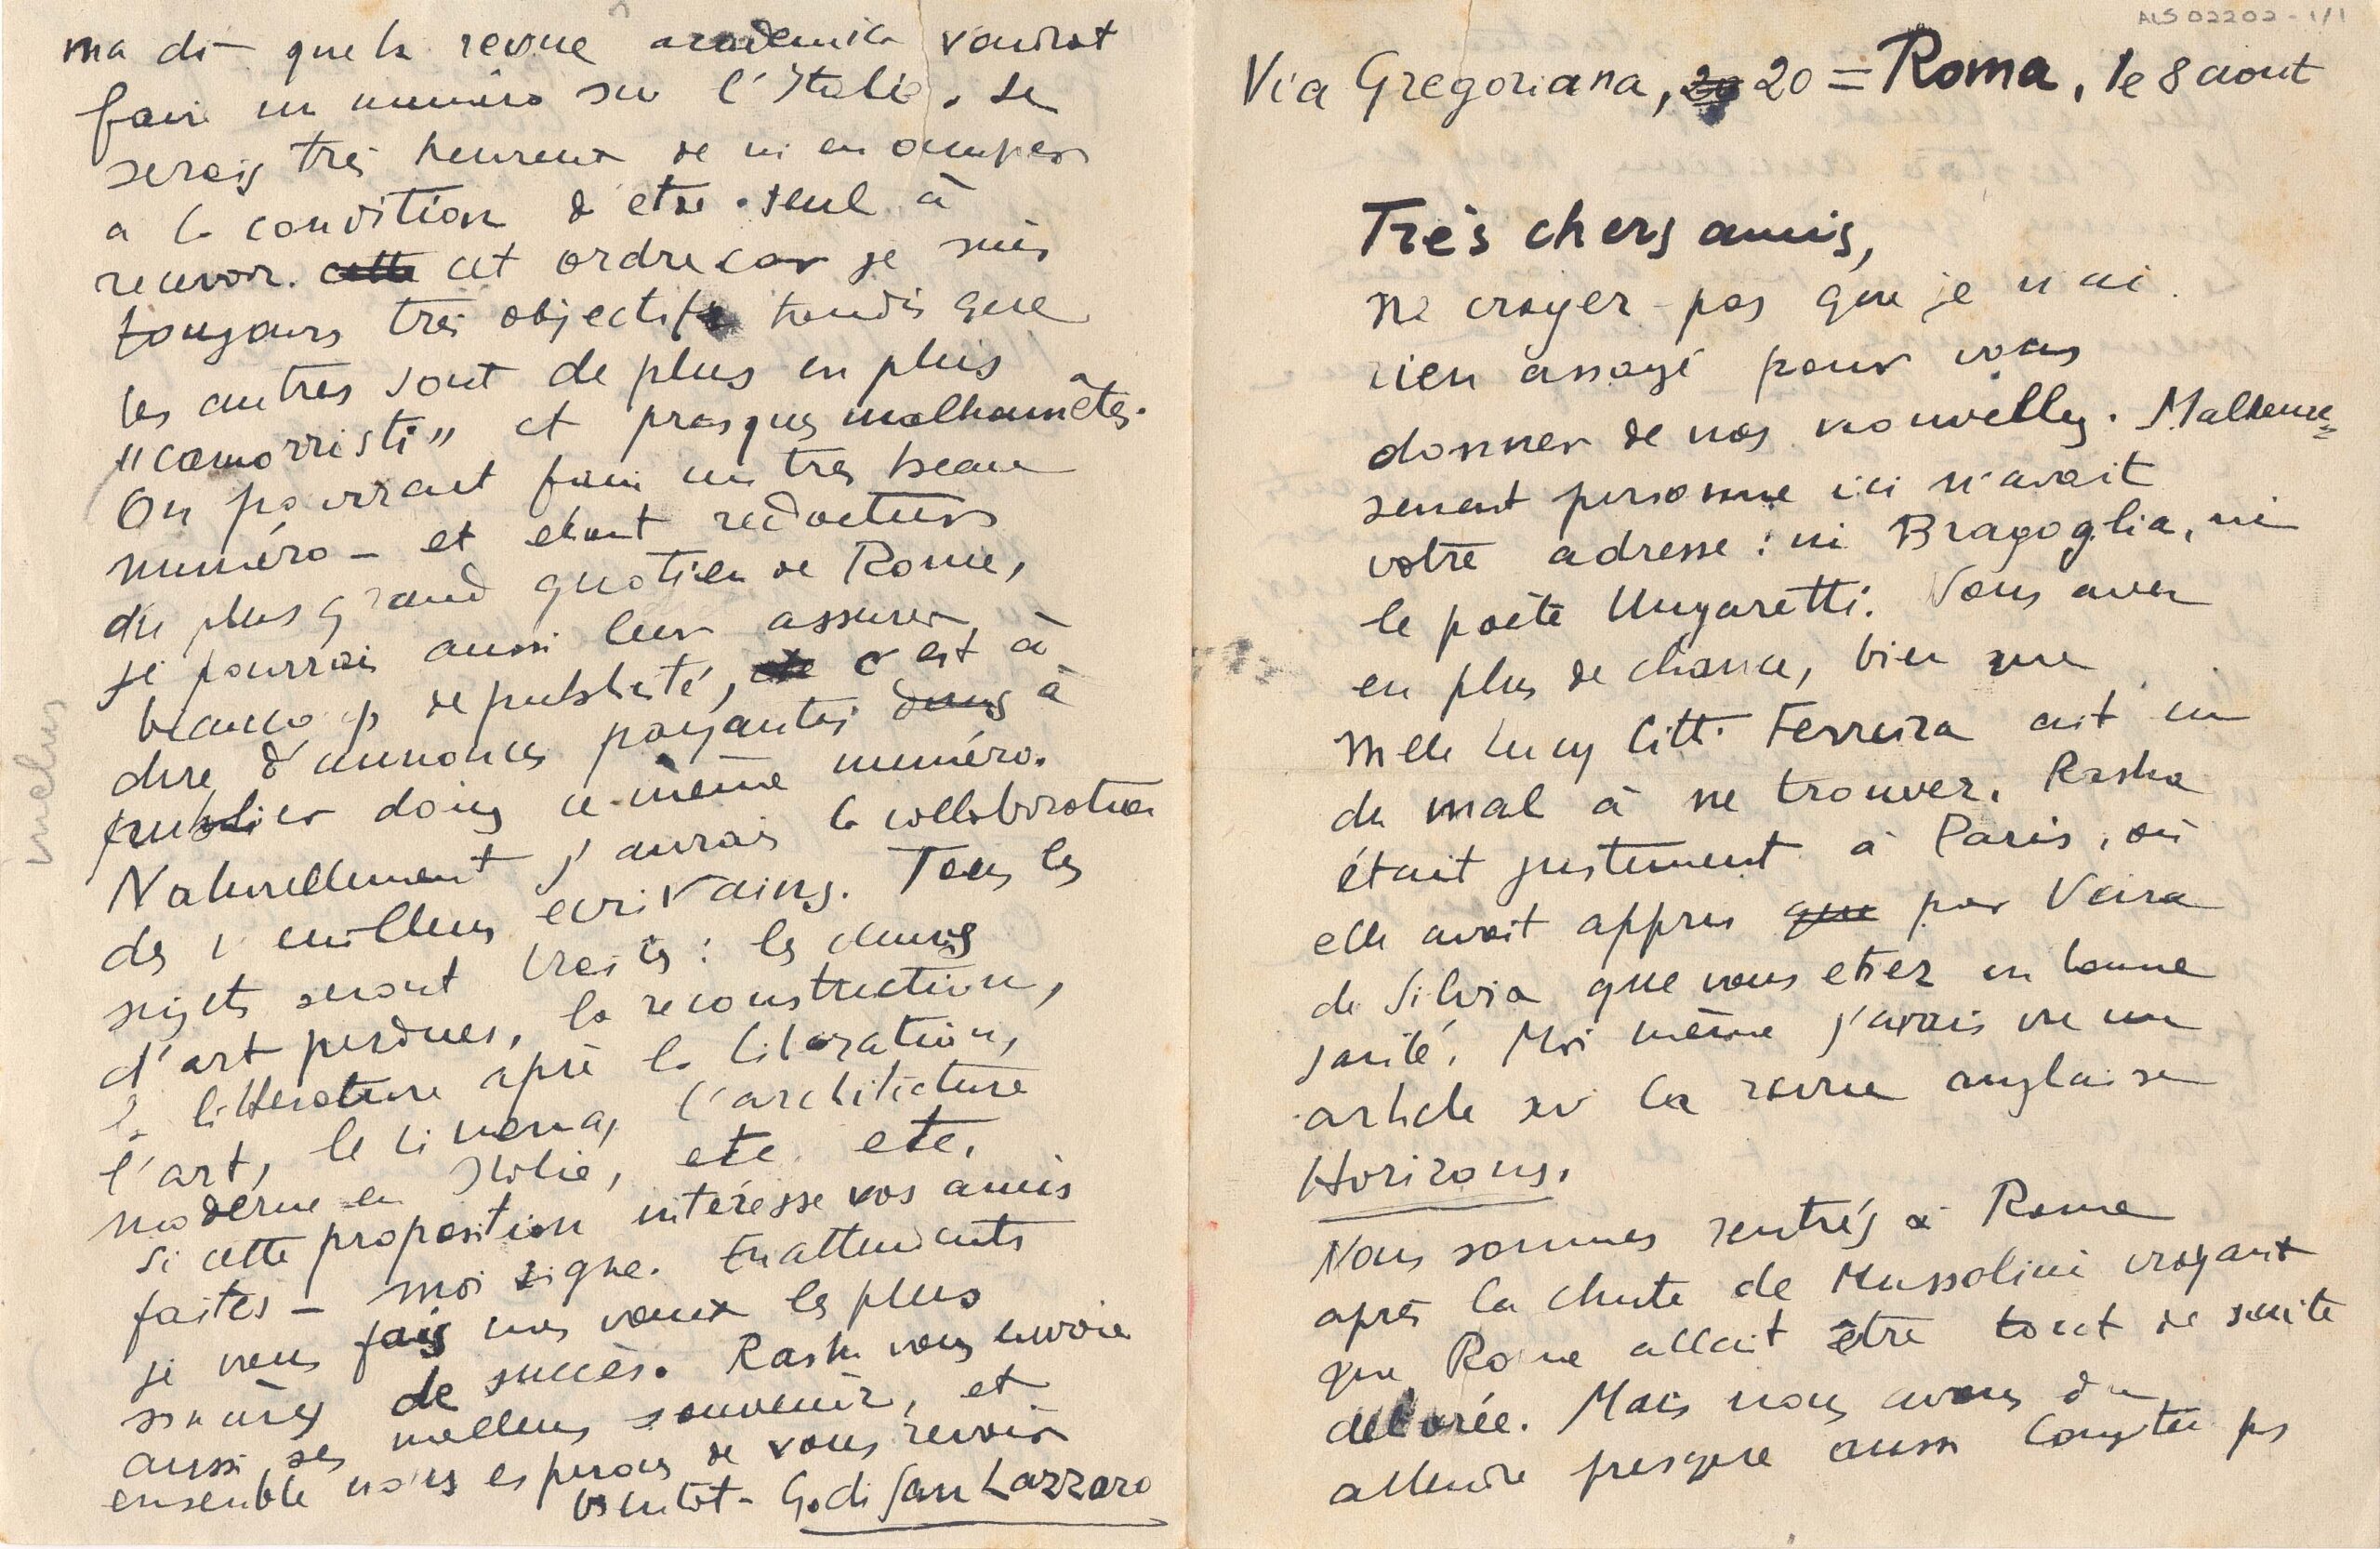 ALS 02202-1/1
Via Gregoriana, 20 20 = Roma, le 8 aout
Très chers amis,
ne croyer pas que je n'ai
rien assayé pour vous
donner de nos nouvelles. Malheureu=
sement personne ici n'avait
votre adresse : ni Bragaglia, ni
le poète Ungaretti. Vous avez
eu plus de chance, bien que
Melle Lucy Citti Ferreira ait eu
du mal à me trouver. Rasha
était justement à Paris, où
elle avait appris que par Veira
da Silvia que vous etiez en bonne
santé. Moi même j'avais vu un
article sur la revue anglaise
Horizons.
Nous sommes rentrés à Rome
après la chute de Mussolini croyant
que Rome allait être tout de suite
deliverée. Mais nous avons du
attendre presque aussi longtemps
ma dit que la revue academica voudrait
faire un numéro sur l'Italie. Je
serais très heureux de m'en occuper
a la condition d'etre seul à
recevoir cette cet ordre car je suis
toujours très objectif tandis que
les autres sont de plus en plus
"camorristi" et presques malhonnêtes.
On pourrait faire un tres beau
numéro - et etant redacteur
du plus grand quotien de Rome,
je pourrais aussi leur assurer
beaucoup de publicité, c'est à
dire d'annonces payantes dans à
publier dans ce même numéro.
Naturellement j'aurais la collaboration
des meilleurs ecrivains. Tous les
sujets seront traités : les oeuvres
d'art perdues, la reconstruction,
la litterature après la liberation,
l'art, le cinema, l'architecture
moderne en Italie, etc. etc.
Si cette proposition intéresse vos amis
faites - moi signe. En attendants
je vous fais mes voeux les plus
sincères de succès. Rasha vous envoie
aussi ses meilleurs souvenir, et
ensemble nous esperons de vous revoir
bientot - G. di San Lazzaro